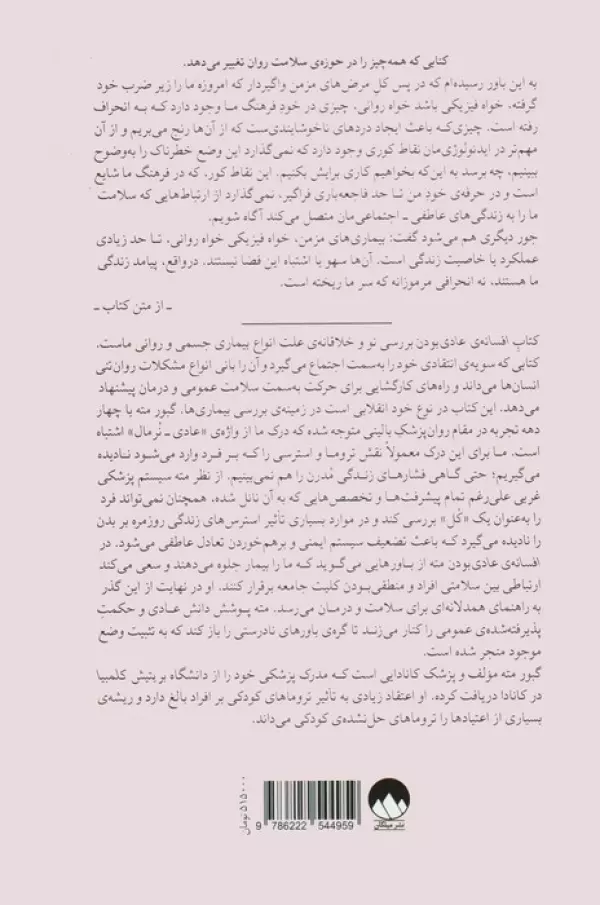 کتابی که همه‌چیز را در حوزه‌ی سلامت روان تغییر می‌دهد.
به این باور رسیده‌ام که در پس کل مرض‌های مزمن واگیردار که امروزه ما را زیر ضرب خود
گرفته، خواه فیزیکی باشد خواه روانی، چیزی در خودِ فرهنگ ما وجود دارد که به انحراف
رفته است. چیزی‌که باعث ایجاد دردهای ناخوشایندی‌ست که از آن‌ها رنج می‌بریم و از آن
مهم‌تر در ایدئولوژی‌مان نقاط کوری وجود دارد که نمی‌گذارد این وضع خطرناک را به‌وضوح
ببینیم، چه برسد به این‌که بخواهیم کاری برایش بکنیم. این نقاط کور، که در فرهنگ ما شایع
است و در حرفه‌ی خودِ من تا حد فاجعه‌باری فراگیر، نمی‌گذارد از ارتباط‌هایی که سلامت
ما را به زندگی‌های عاطفی ـ اجتماعی‌مان متصل می‌کند آگاه شویم.
جور دیگری هم می‌شود گفت: بیماری‌های مزمن، خواه فیزیکی خواه روانی، تا حد زیادی
عملکرد یا خاصیت زندگی است. آن‌ها سهو یا اشتباه این فضا نیستند. درواقع، پیامد زندگی
ما هستند، نه انحرافی مرموزانه که سر ما ریخته است.
ـ از متن کتاب ـ
کتاب افسانه‌ی عادی‌بودن بررسی نو و خلاقانه‌ی علت انواع بیماری جسمی و روانی ماست.
کتابی که سویه‌ی انتقادی خود را به‌سمت اجتماع می‌گیرد و آن را بانی انواع مشکلات روان‌تنی
انسان‌ها می‌داند و راه‌های کارگشایی برای حرکت به‌سمت سلامت عمومی و درمان پیشنهاد
می‌دهد. این کتاب در نوع خود انقلابی است در زمینه‌ی بررسی بیماری‌ها. گبور مته با چهار
دهه تجربه در مقام روان‌پزشکِ بالینی متوجه شده که درک ما از واژه‌ی «عادی ـ نُرمال» اشتباه
است. ما برای این درک معمولاً نقش تروما و استرسی را که بر فرد وارد می‌شود نادیده
می‌گیریم؛ حتی گاهی فشارهای زندگی مُدرن را هم نمی‌بینیم. از نظر مته سیستم پزشکی
غربی علی‌رغم تمام پیشرفت‌ها و تخصص‌هایی که به آن نائل شده، همچنان نمی‌تواند فرد
را به‌عنوان یک «کُل» بررسی کند و در موارد بسیاری تأثیر استرس‌های زندگی روزمره بر بدن
را نادیده می‌گیرد که باعث تضعیف سیستم ایمنی و برهم‌خوردن تعادل عاطفی می‌شود. در
افسانه‌ی عادی‌بودن مته از باورهایی می‌گوید که ما را بیمار جلوه می‌دهند و سعی می‌کند
ارتباطی بین سلامتی افراد و منطقی‌بودن کلیت جامعه برقرار کنند. او در نهایت از این گذر
به راهنمای همدلانه‌ای برای سلامت و درمان می‌رسد. مته پوشش دانش عادی و حکمتِ
پذیرفته‌شده‌ی عمومی را کنار می‌زند تا گره‌ی باورهای نادرستی را باز کند که به تثبیت وضع
موجود منجر شده است.
گبور مته مؤلف و پزشک کانادایی است که مدرک پزشکی خود را از دانشگاه بریتیش کلمبیا
در کانادا دریافت کرده. او اعتقاد زیادی به تأثیر تروماهای کودکی بر افراد بالغ دارد و ریشه‌ی
بسیاری از اعتیادها را تروماهای حل‌نشده‌ی کودکی می‌داند.
۵۱۵۰۰۰ تومان
9 786222 544959
نشر میلکان